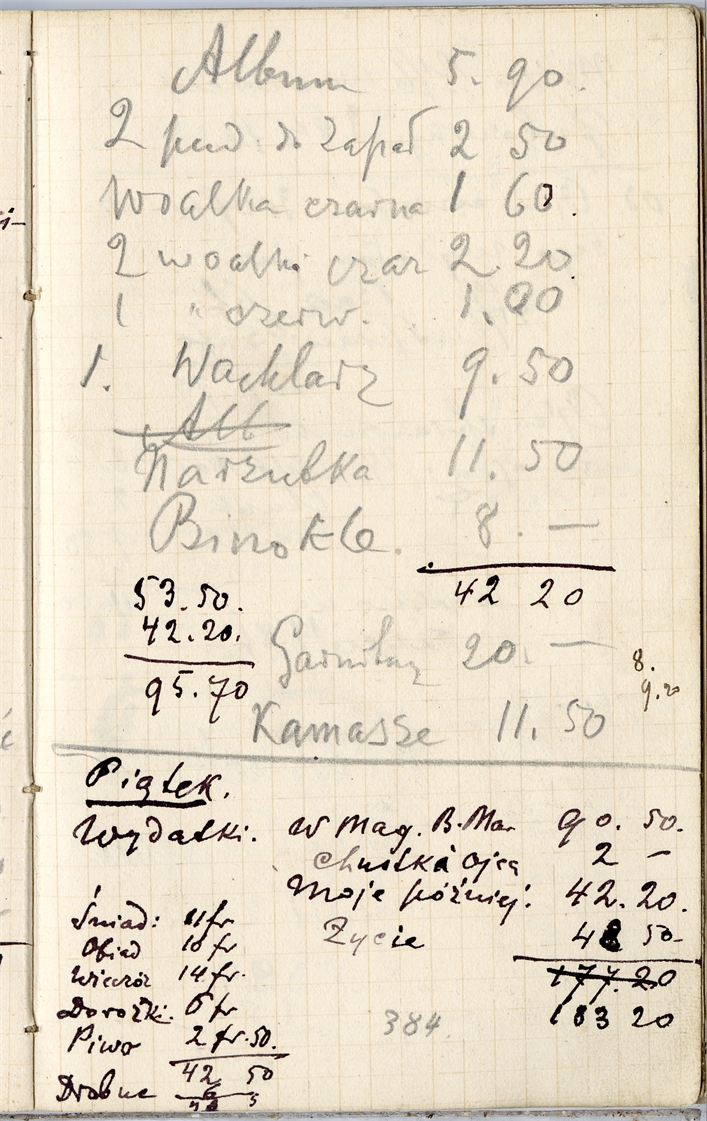 Album 5.90.
2 pud. do Zapał 2 50
Woalka czarna 1 60.
2 woalki czar 2.20
1 " czerw. 1.00
1. Wachlarz 9.50
Alb
Narzutka 11.50
Binokle. 8.—
42 20
53.50.
42.20.
95.70
Garnitur 20.—
8.
9.20
Kamasze 11.50
Piątek.
Wydatki. W Mag. B. Mar. 90.50.
chustka ojca 2 —
Moje później. 42.20.
Życie 48 50-
177.20
183 20
Śniad: 11 fr
Obiad 10 fr
Wieczór 14 fr.
Dorożki. 5 fr
Piwo 2 fr. 50.
42 50
Drobne 6
384.